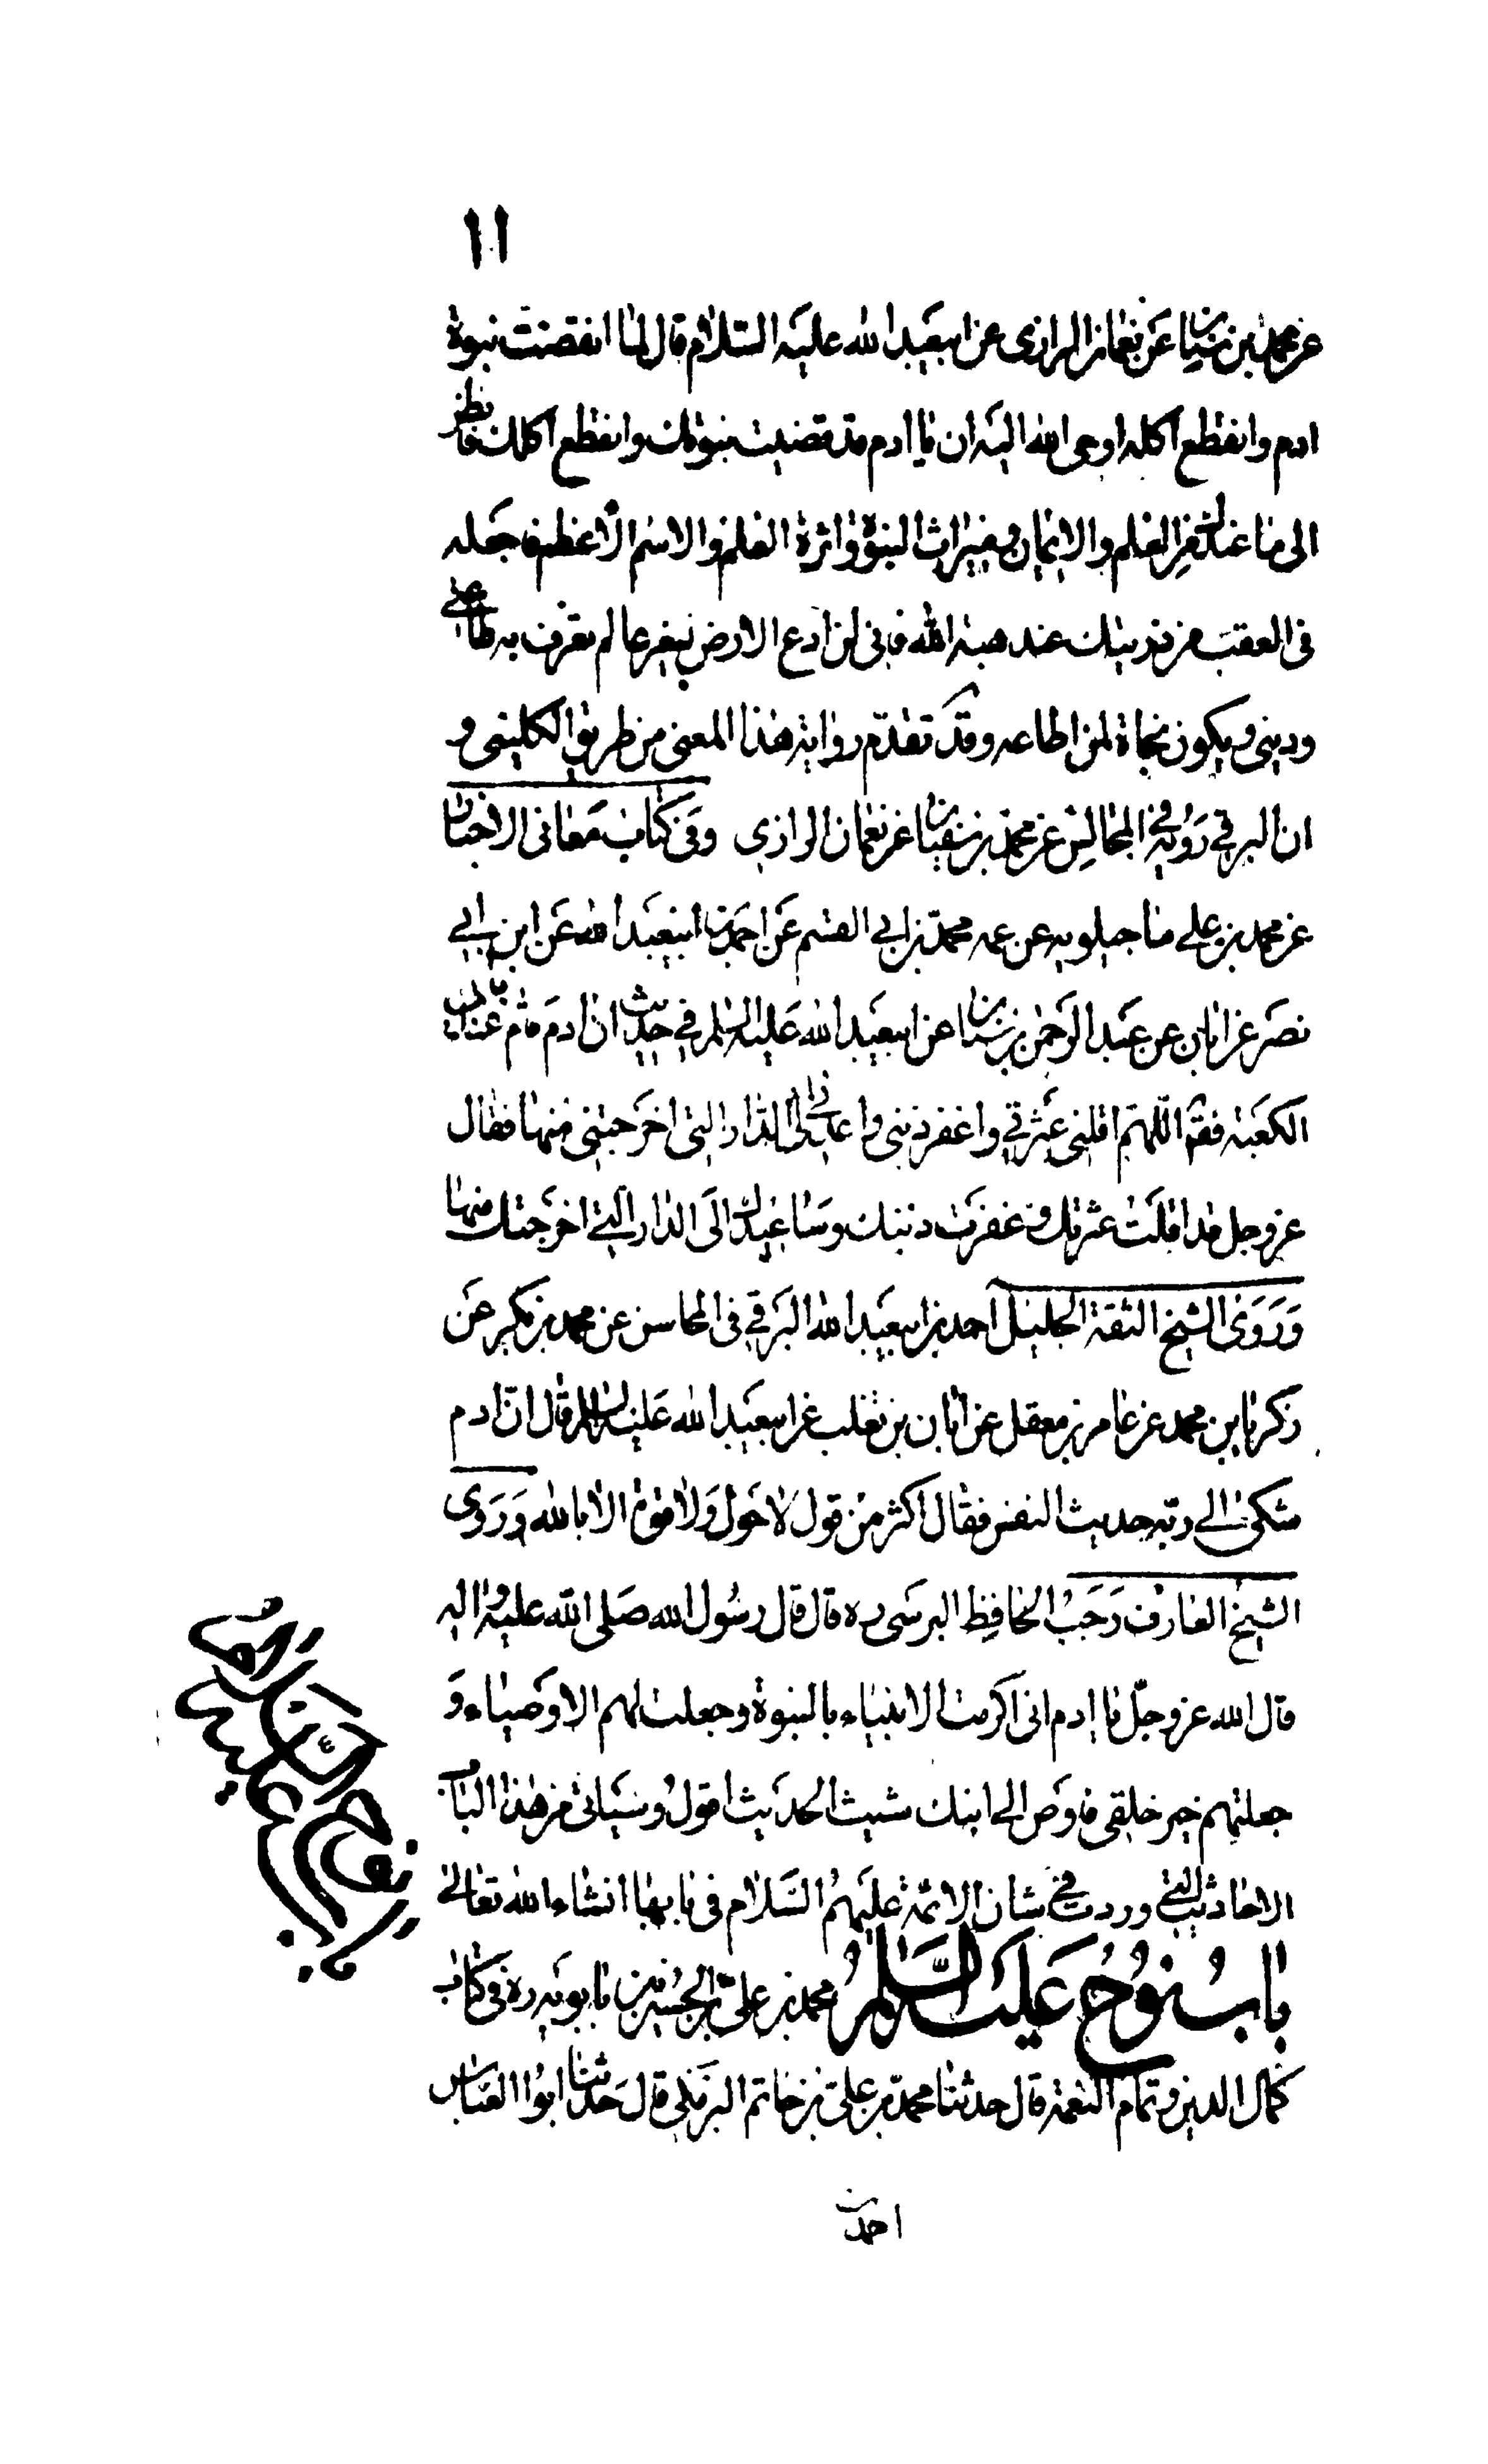 ١١
عن محمد بن سنان عن نعمان الرازى عن ابيعبد الله عليه السّلام قال لما انقضت نبوة
ادم وانقطع اكله اوحى الله اليه ان يا ادم قد قضيت نبوتك وانقطع اكلك فانظر
الى ما عندك من العلم والايمان وميراث النبوة واثرة العلم والاسم الاعظم فاجعله
فى العقب من ذريتك عند هبة الله فانى لن ادع الارض بغير عالم يعرف به طاعتى
ودينى ويكون نجاة لمن اطاعه وقد تقدّم رواية هذا المعنى من طريق الكلينى و
ان البرقي رويه في المجالس عن محمد بن سنان عن نعمان الرازي وفى كتاب معانى الاخبار
عن محمد بن علي ماجيلويه عن عمه محمد بن ابي القسم عن احمد بن ابيعبد الله عن ابن ابي
نصر عن ابان عن عبد الرحمن بن سيابة عن ابيعبد الله عليه السلم في حديث ان ادم قام على باب
الكعبة فقال اللّهم اقلنى عثرتي واغفر ذنبى واعدنى الى الدار التى اخرجتنى منها فقال
عز وجل قد اقلت عثرتك وغفرت ذنبك وساعيدك الى الدار التي اخرجتك منها
وروى الشيخ الثقة الجليل احمد بن ابيعبد الله البرقي فى المحاسن عن محمد بن بكير عن
زكريا بن محمد عن عامر بن معقل عن ابان بن تغلب عن ابيعبد الله عليه السلم قال انّ ادم
شكى الى ربّه حديث النفس فقال اكثر من قول لا حول ولا قوة الا بالله وروى
الشيخ العارف رجب الحافظ البرسى ره قال قال رسول الله صلى الله عليه واله
قال الله عز وجلّ يا ادم انى اكرمت الانبياء بالنبوة وجعلت لهم الاوصياء و
جعلتهم خير خلقى فاوص الى ابنك شيث الحديث اقول وسياتى من هذا الباب
الاحاديث التي وردت في شان الائمة عليهم السلام فى بابها انشاء الله تعالى
باب نوح عليه السلم محمد بن على بن الحسين بن بابويه ره في كتاب
كمال الدين وتمام النعمة قال حدثنا محمد بن على بن حاتم البرمكى قال حدثنا ابوا العباس
احمد بن